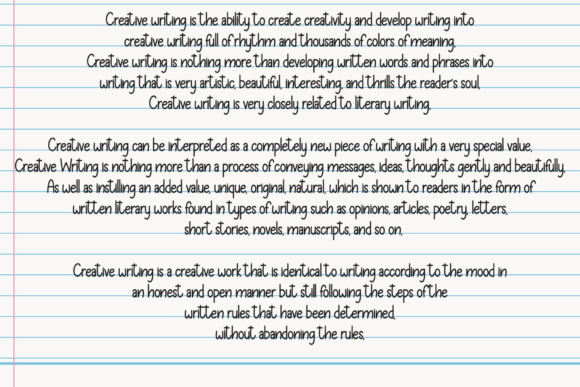 Creative writing is the ability to create creativity and develop writing into
creative writing full of rhythm and thousands of colors of meaning.
Creative writing is nothing more than developing written words and phrases into
writing that is very artistic, beautiful, interesting, and thrills the reader's soul.
Creative writing is very closely related to literary writing.
Creative writing can be interpreted as a completely new piece of writing with a very special value.
Creative Writing is nothing more than a process of conveying messages, ideas, thoughts gently and beautifully,
As well as instilling an added value, unique, original, natural, which is shown to readers in the form of
written literary works found in types of writing such as opinions, articles, poetry, letters,
short stories, novels, manuscripts, and so on.
Creative writing is a creative work that is identical to writing according to the mood in
an honest and open manner but still following the steps of the
written rules that have been determined,
without abandoning the rules.